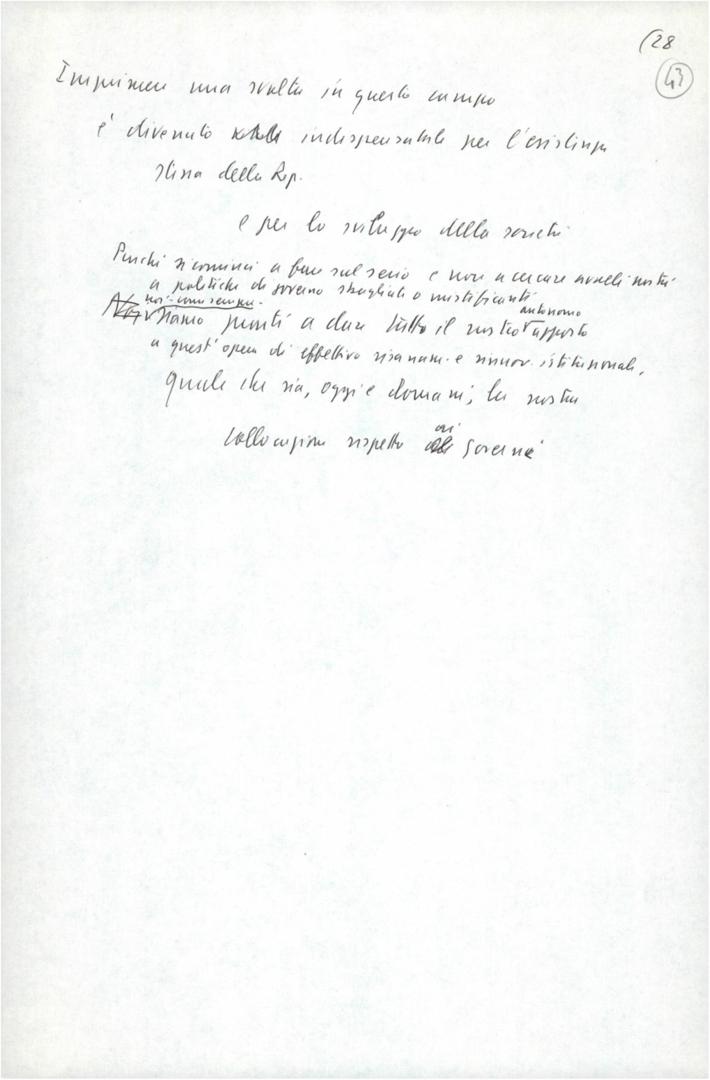 (28
43
Imprimere una svolta in questo campo
è divenuto indispensabile per l'esistenza
stessa della Rep.
e per lo sviluppo della società
Purché si cominci a fare sul serio e non a cercare avalli nostri
a politiche di governo sbagliate o mistificanti
noi comunisti
autonomo
siamo pronti a dare tutto il nostro apporto
a quest'opera di effettivo risanam. e rinnov. istituzionale,
quale che sia, oggi e domani, la nostra
collocazione rispetto ai Governi